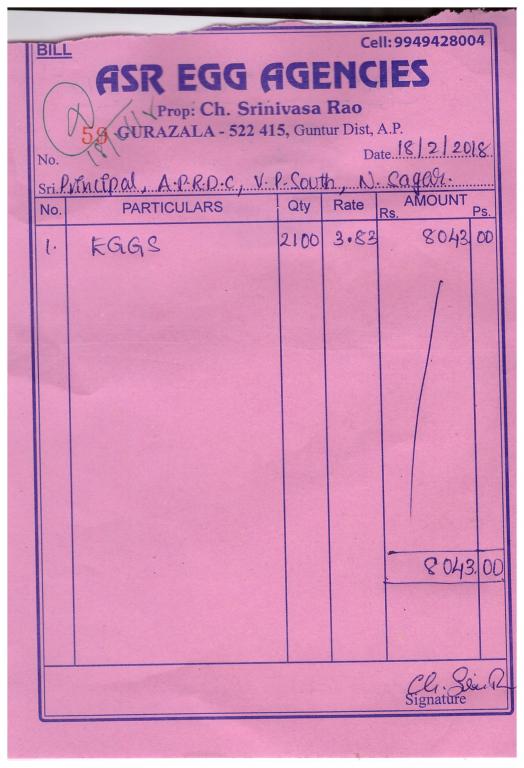 BILL
Cell: 9949428004
ASR EGG AGENCIES
Prop: Ch. Srinivasa Rao
59 GURAZALA - 522 415, Guntur Dist, A.P.
No. Date 18/2/2018
Sri. Principal, A.P.R.D.C, V.P. South, N. Sagar.
No. PARTICULARS Qty Rate AMOUNT
Rs. Ps.
1. EGGS 2100 3.83 8043 00
8043.00
Signature